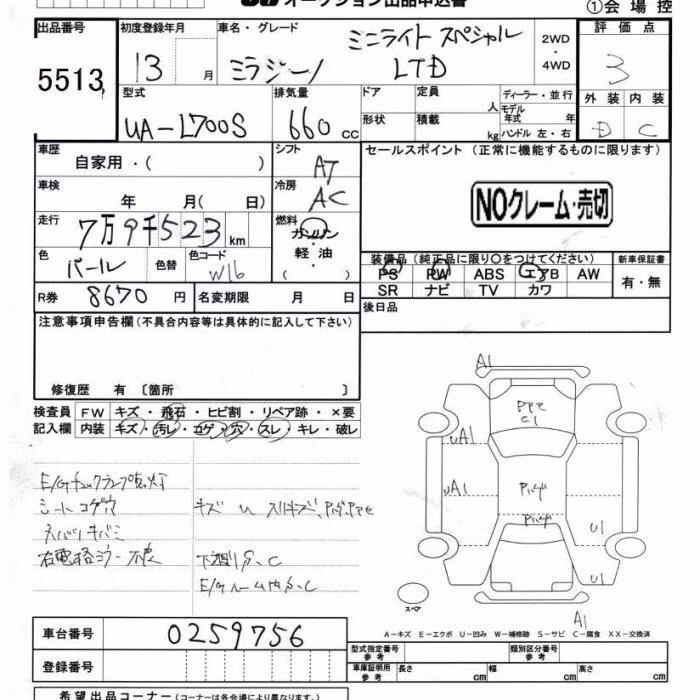 オークション出品申込書
①会場控
出品番号 初度登録年月 車名・グレード 2WD・4WD 評価点
5513 13 月 ミラジーノ ミニライト スペシャル LTD 3
型式 排気量 ドア 定員 人 ディーラー・並行 外装 内装
UA-L700S 660 cc 形状 積載 kg モデル年式 年 ハンドル 左・右 D C
車歴 自家用・( ) シフト AT セールスポイント (正常に機能するものに限ります)
車検 年 月( 日) 冷房 AC NOクレーム・売切
走行 7万9千523 km 燃料 ガソリン・軽油・( )
色 パール 色替 色コード W16
装備品 (純正品に限り○をつけてください) 新車保証書
PS PW ABS エアB AW 有・無
SR ナビ TV カワ
R券 8670 円 名変期限 月 日 後日品
注意事項申告欄 (不具合内容等は具体的に記入して下さい)
修復歴 有 〔箇所 〕
検査員 FW キズ・飛石・ヒビ割・リペア跡・×要
記入欄 内装 キズ・汚レ・コゲ・穴・スレ・キレ・破レ
E/Gチェックランプ点灯
シートコゲ穴
右電格ミラー不良
キズ U スリキズ、
下廻りS、C
E/Gルーム内S、C
A1
C1
UA1
UA1
U1
U1
A1
スペア
A-キズ E-エクボ U-凹み W-補修跡 S-サビ C-腐食 XX-交換済
車台番号 0259756
型式指定番号 参考 類別区分番号 参考
登録番号
車庫証明用 参考 長さ cm 幅 cm 高さ cm
希望出品コーナー (コーナーは各会場により異なります。)